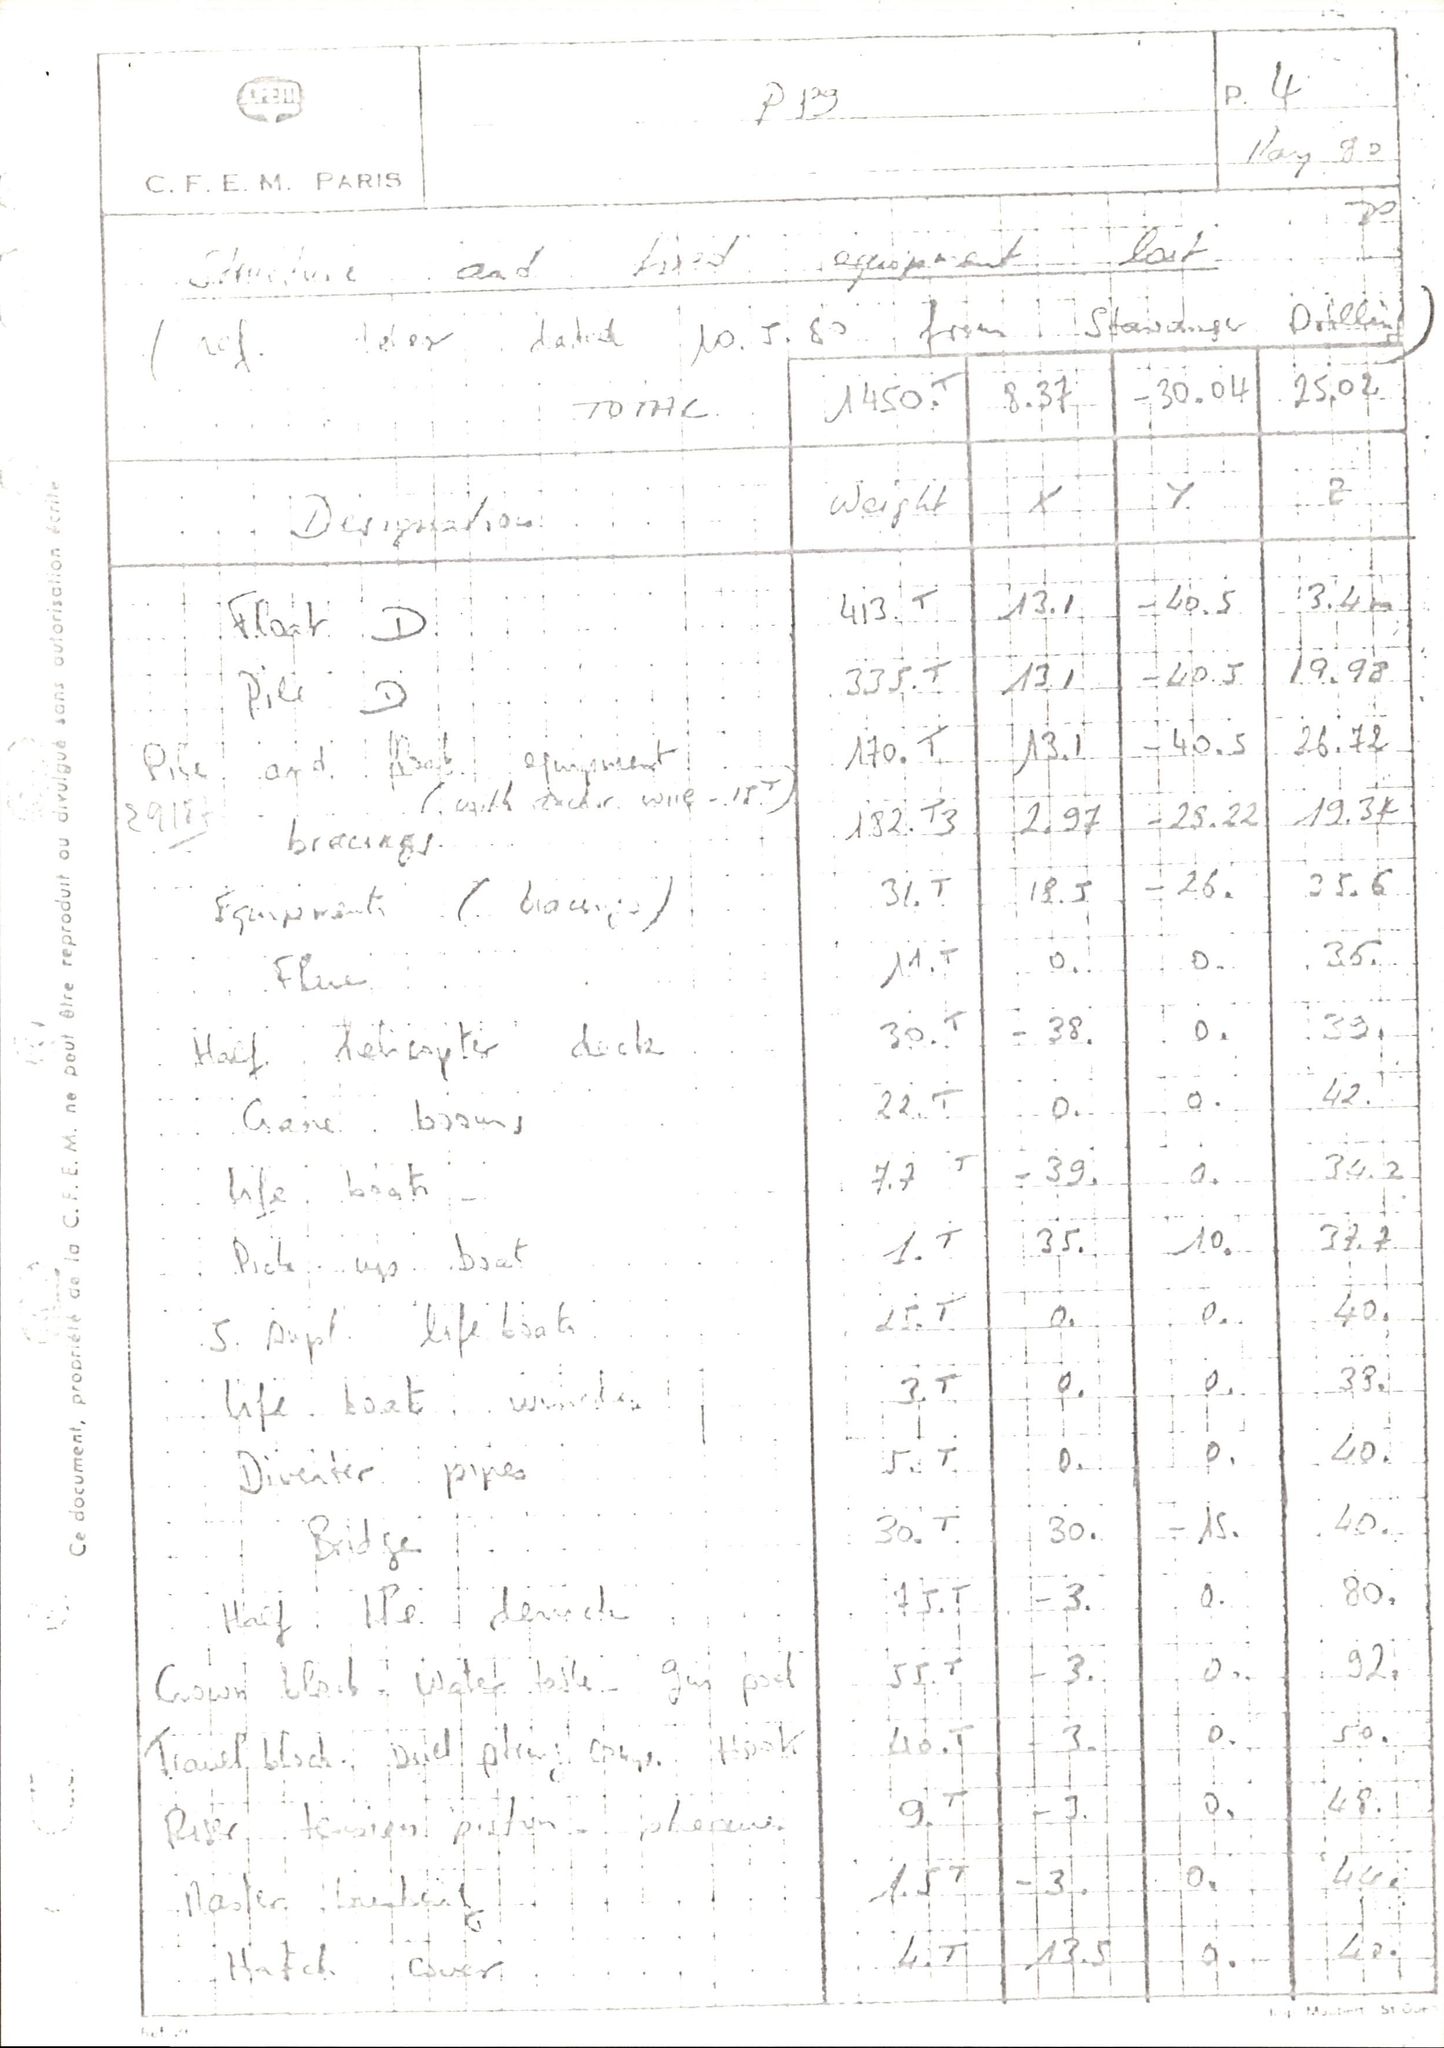 C.F.E.M. PARIS
P 4
May 80
Structure and fixed equipment lost
(ref. telex dated 10.5.80 from Stavanger Drilling)
TOTAL 1450.T 8.37 -30.04 25.02
Designation Weight X Y Z
Float D 413.T 13.1 -40.5 3.4
Pile D 335.T 13.1 -40.5 19.98
Pile and float equipment 170.T 13.1 -40.5 26.72
(with anchor wire -18T)
bracings 182.T3 2.97 -25.22 19.34
Equipments (bracings) 31.T 18.5 -26. 35.6
Flue 11.T 0. 0. 35.
Half helicopter deck 30.T -38. 0. 39.
Crane booms 22.T 0. 0. 42.
life boats - 7.7 T -39. 0. 34.2
Pick up boat 1.T 35. 10. 37.7
5. Supl. life boats 25.T 0. 0. 40.
life boat winches 3.T 0. 0. 33.
Diverter pipes 5.T 0. 0. 40.
Bridge 30.T 30. -15. 40.
Half the derrick 75.T -3. 0. 80.
Crown block - Water table - Gin pool 55.T -3. 0. 92.
Travel block. comp. Hook 40.T -3. 0. 50.
Riser tension piston - 9.T -3. 0. 48.
Master 1.5T -3. 0. 44.
Hatch cover 4.T 13.5 0. 40.
Ce document, propriété de la C.F.E.M. ne peut être reproduit ou divulgué sans autorisation écrite